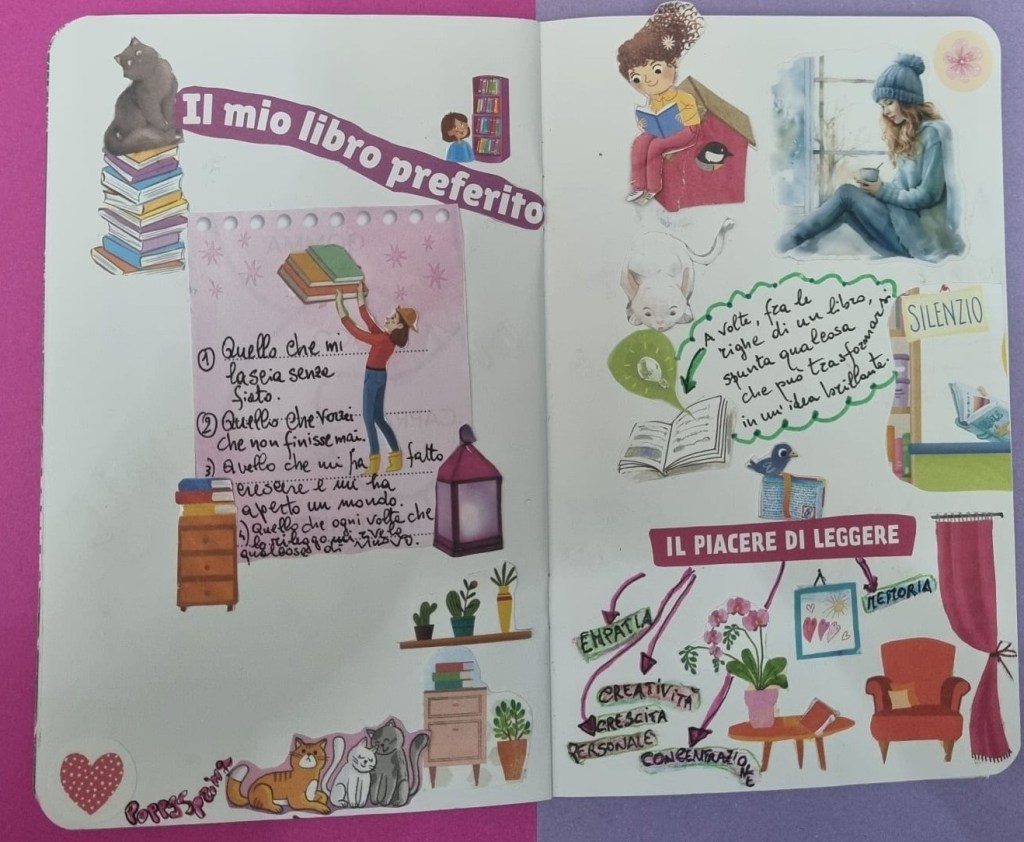 Il mio libro preferito
1) Quello che mi
lascia senza
fiato.
2) Quello che vorrei
che non finisse mai.
3) Quello che mi ha fatto
crescere e mi ha
aperto un mondo.
4) Quello che ogni volta che
lo rileggo mi rivela
qualcosa di nuovo.
Poppyspring
A volte, fra le
righe di un libro,
spunta qualcosa
che può trasformarsi
in un'idea brillante.
SILENZIO
IL PIACERE DI LEGGERE
MEMORIA
EMPATIA
CREATIVITÀ
CRESCITA
PERSONALE
CONCENTRAZIONE